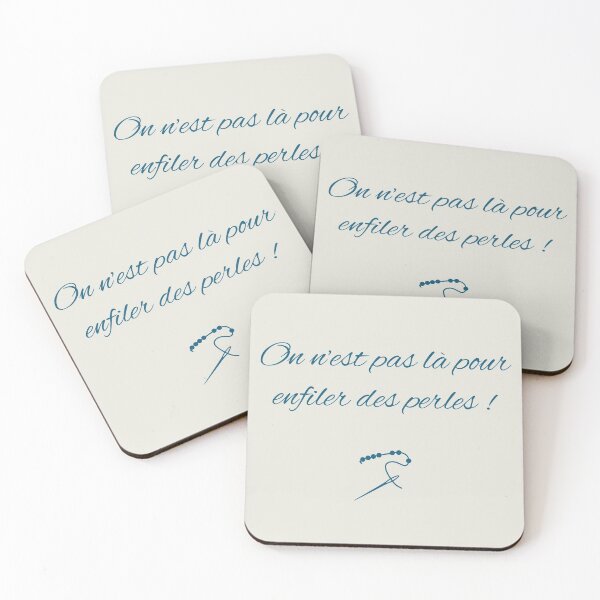 On n'est pas là pour
enfiler des perles
On n'est pas là pour
enfiler des perles !
On n'est pas là pour
enfiler des perles !
On n'est pas là pour
enfiler des perles !